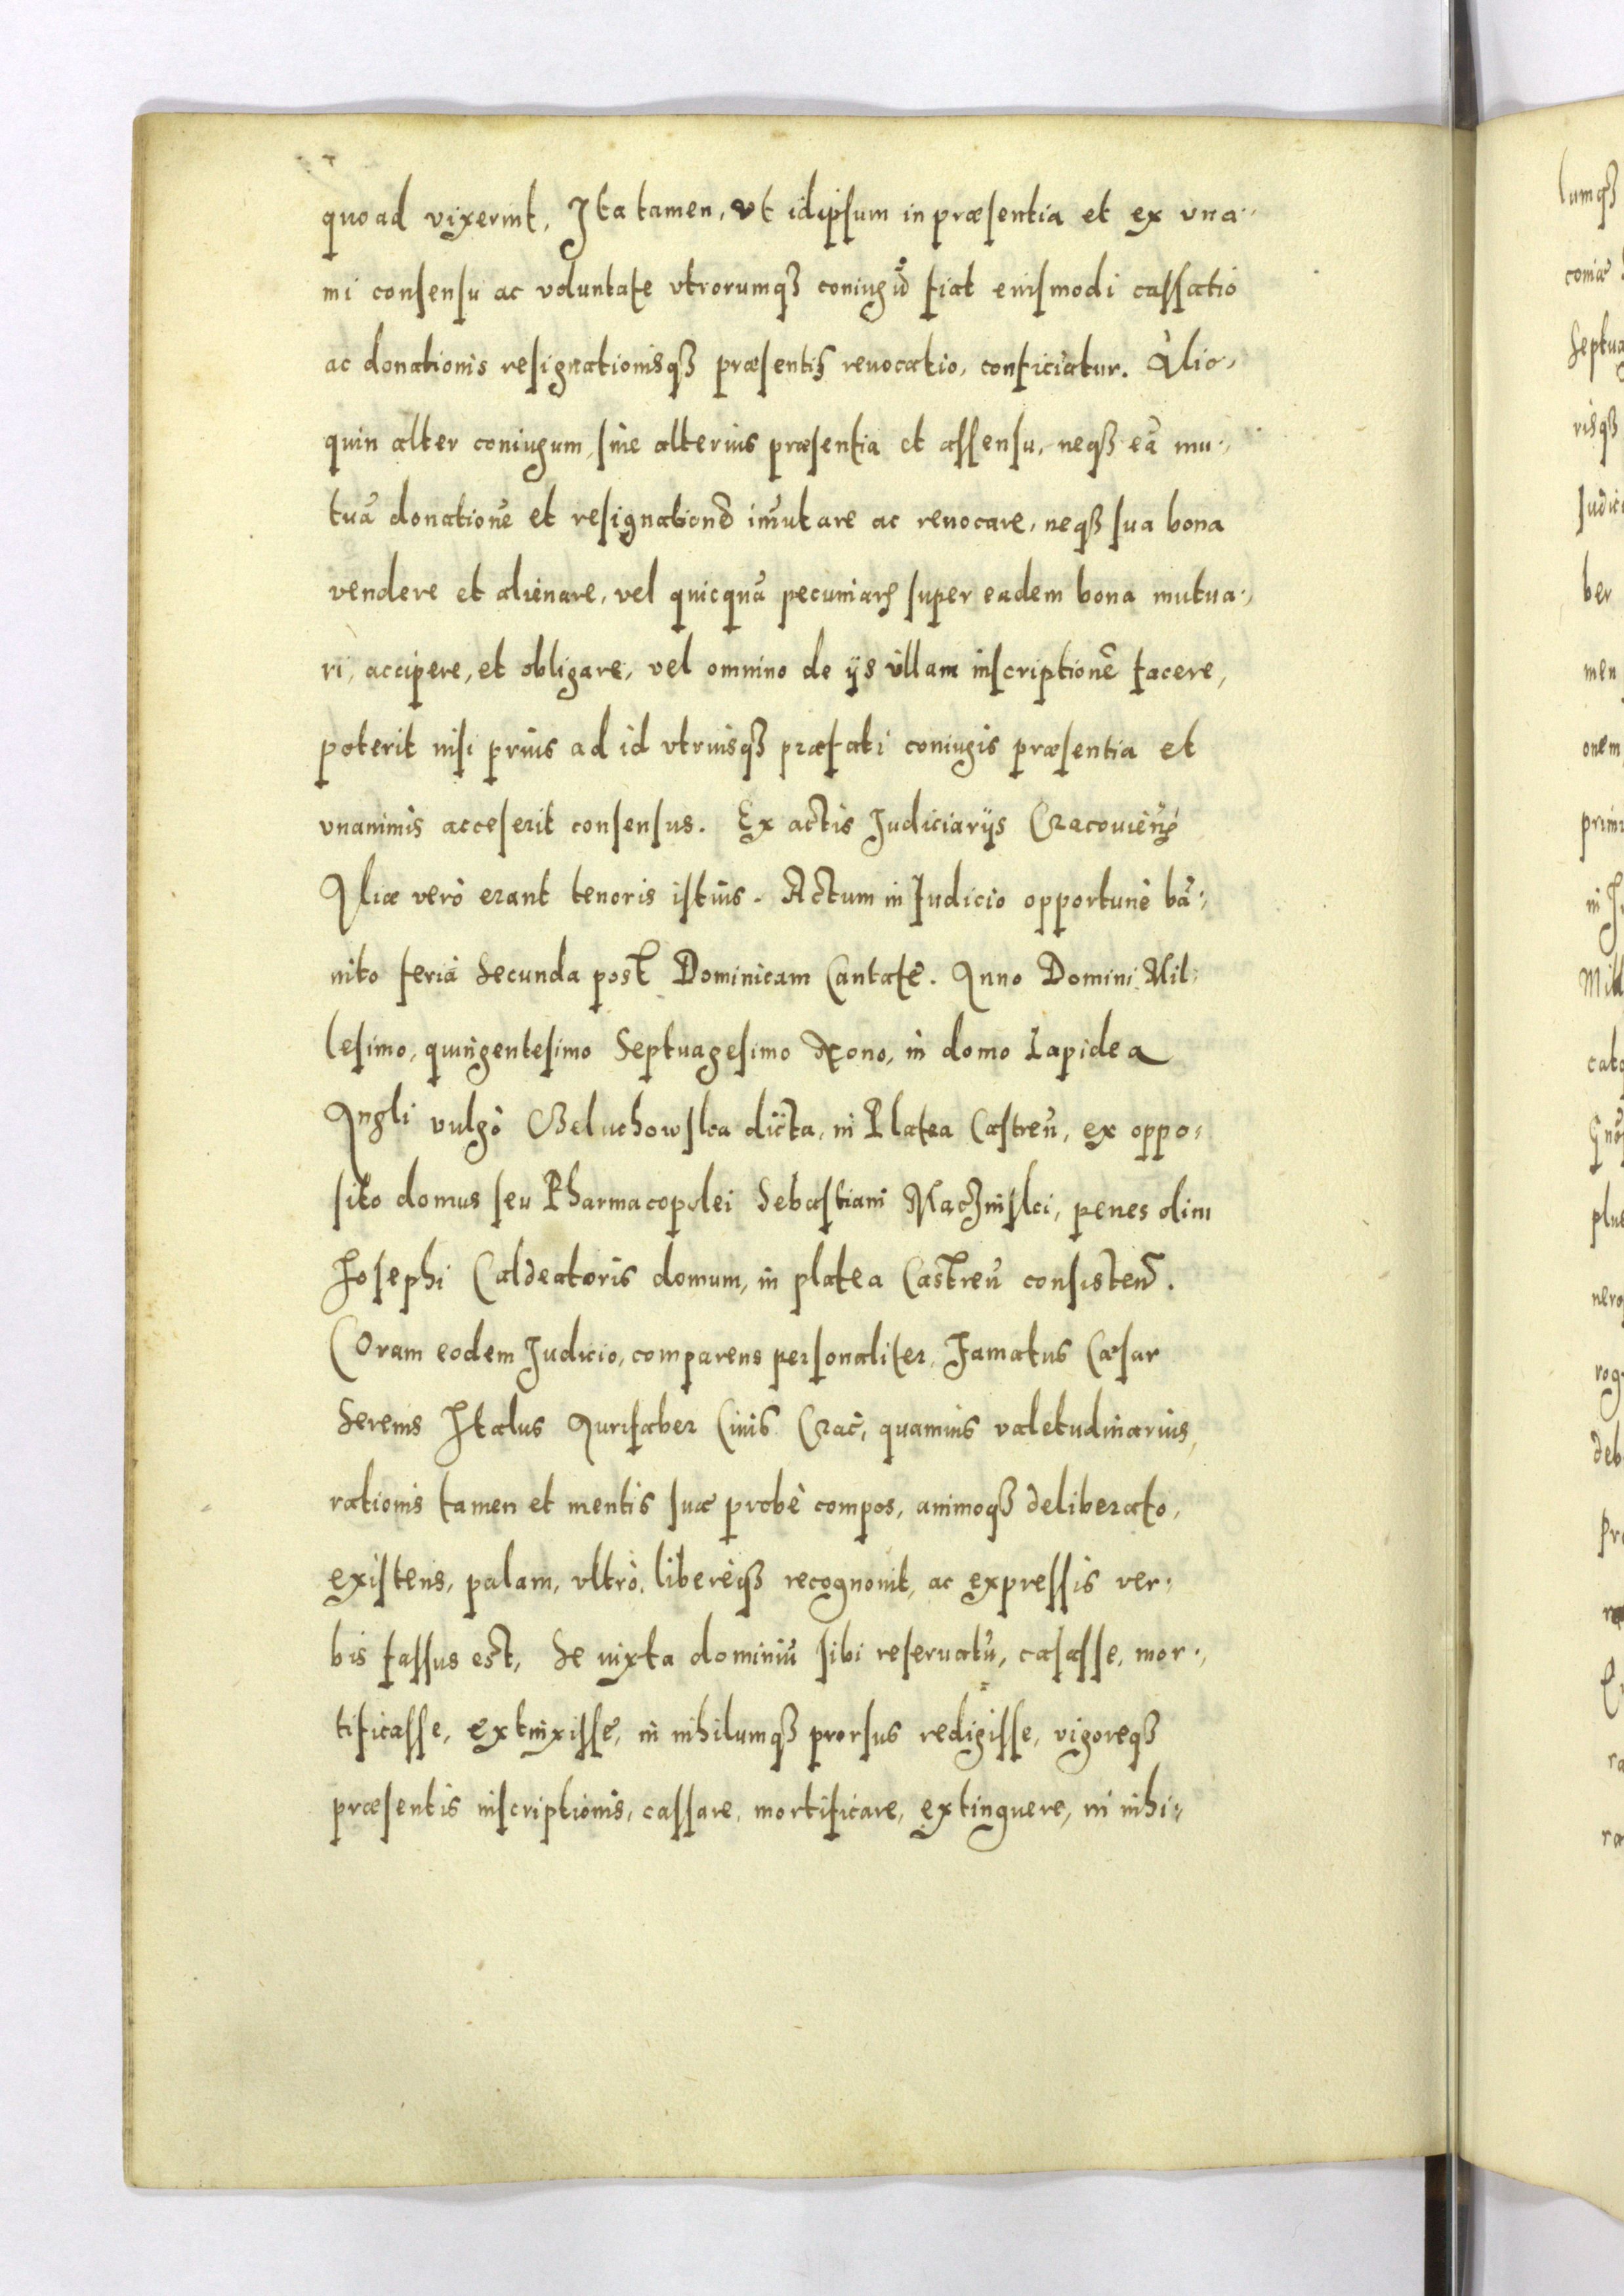 quoad vixerint, Ita tamen, vt idipsum in præsentia et ex vna-
mi consensu ac voluntate vtrorumqȝ coniugũ fiat eiusmodi cassatio
ac donationis resignationisqȝ præsentis reuocatio, conficiatur. Alio-
quin alter coniugum, sine alterius præsentia et assensu, neqȝ eã mu-
tuã donationẽ et resignationẽ im̃utare ac reuocare, neqȝ sua bona
vendere et alienare, vel quicquã pecuniarꝝ super eadem bona mutua-
ri, accipere, et obligare, vel omnino de ijs vllam inscriptionẽ facere,
poterit nisi prius ad id vtriusqȝ præfati coniugis præsentia et
vnanimis acceserit consensus. Ex actis Judiciarijs Cracouien̄
Aliæ verò erant tenoris istius. Actum in Judicio opportunè bã-
nito feria Secunda post Dominicam Cantate. Anno Domini Mil-
lesimo, quingentesimo Septuagesimo Nono, in domo Lapidea
Angli vulgò Beluchowska dicta, in Platea Castren̄, ex oppo-
sito domus seu Pharmacopolei Sebastiani Maczinski, penes olim
Josephi Caldeatoris domum, in platea Castren̄ consisten̄.
Coram eodem Judicio, comparens personaliter, Famatus Cæsar
Serenis Italus Aurifaber Ciuis Crac̄, quamuis valetudinarius,
rationis tamen et mentis suæ probè compos, animoqȝ deliberato,
existens, palam, vltrò, liberèqȝ recognouit, ac expressis ver-
bis fassus est, Se iuxta dominiũ sibi reseruatũ, casasse, mor-
tificasse, extinxisse, in nihilumqȝ prorsus redigisse, vigoreqȝ
præsentis inscriptionis, cassare, mortificare, extinguere, in nihi-